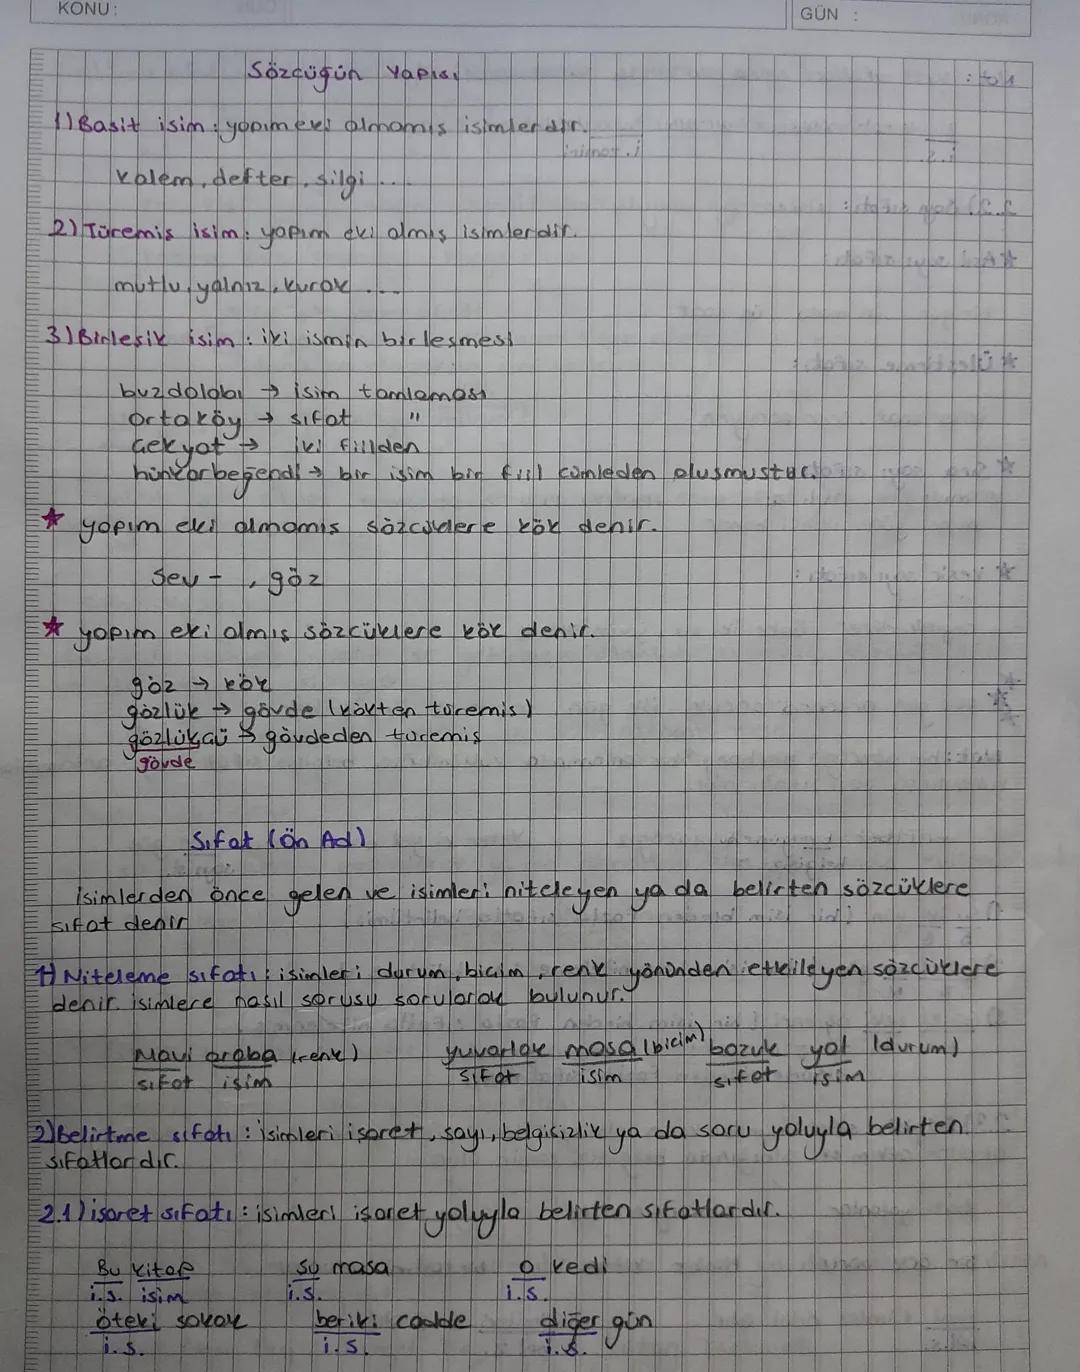 KONU :
GÜN :
Sözcüğün Yapısı
1) Basit isim : yapım eki almamış isimlerdir.
kalem, defter, silgi ...
2) Türemiş isim : yapım eki almış isimlerdir.
mutlu, yalnız, kurak ....
3) Birleşik isim : iki ismin birleşmesi
buzdolabı → isim tamlaması
Ortaköy → sıfat "
Çekyat → iki fiilden
hünkarbeğendi → bir isim bir fiil cümleden oluşmuştur.
★ yapım eki almamış sözcüklere kök denir.
Sev - , göz
★ yapım eki almış sözcüklere kök denir.
göz → kök
gözlük → gövde (kökten türemiş)
gözlükçü → gövdeden türemiş
gövde
Sıfat (Ön Ad)
isimlerden önce gelen ve isimleri niteleyen ya da belirten sözcüklere
sıfat denir
1) Niteleme sıfatı : isimleri durum, biçim, renk yönünden etkileyen sözcüklere
denir. isimlere nasıl sorusu sorularak bulunur.
Mavi araba (renk) yuvarlak masa (biçim) bozuk yol (durum)
sıfat isim sıfat isim sıfat isim
2) Belirtme sıfatı : isimleri işaret, sayı, belgisizlik ya da soru yoluyla belirten
sıfatlardır.
2.1) işaret sıfatı : isimleri işaret yoluyla belirten sıfatlardır.
Bu kitap şu masa o kedi
i.s. isim i.s. i.s.
öteki sokak beriki cadde diğer gün
i.s. i.s. i.s.